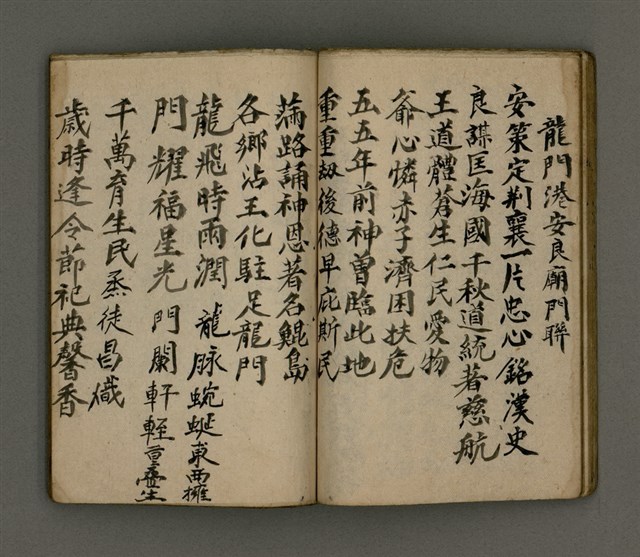 龍門港安良廟門聯
安策定荆襄一片忠心銘漢史
良謀匡海國千秋道統著慈航
王道體蒼生仁民愛物
爺心憐赤子濟困扶危
五五年前神曾臨此地
重重劫後德早庇斯民
滿路誦神恩著名鯤島
各鄉沾王化駐足龍門
龍飛時雨潤 龍脉蜿蜒東西擁
門耀福星光 門闌軒輊重疊生
千萬育生民丞徒昌熾
歲時逢令節祀典馨香